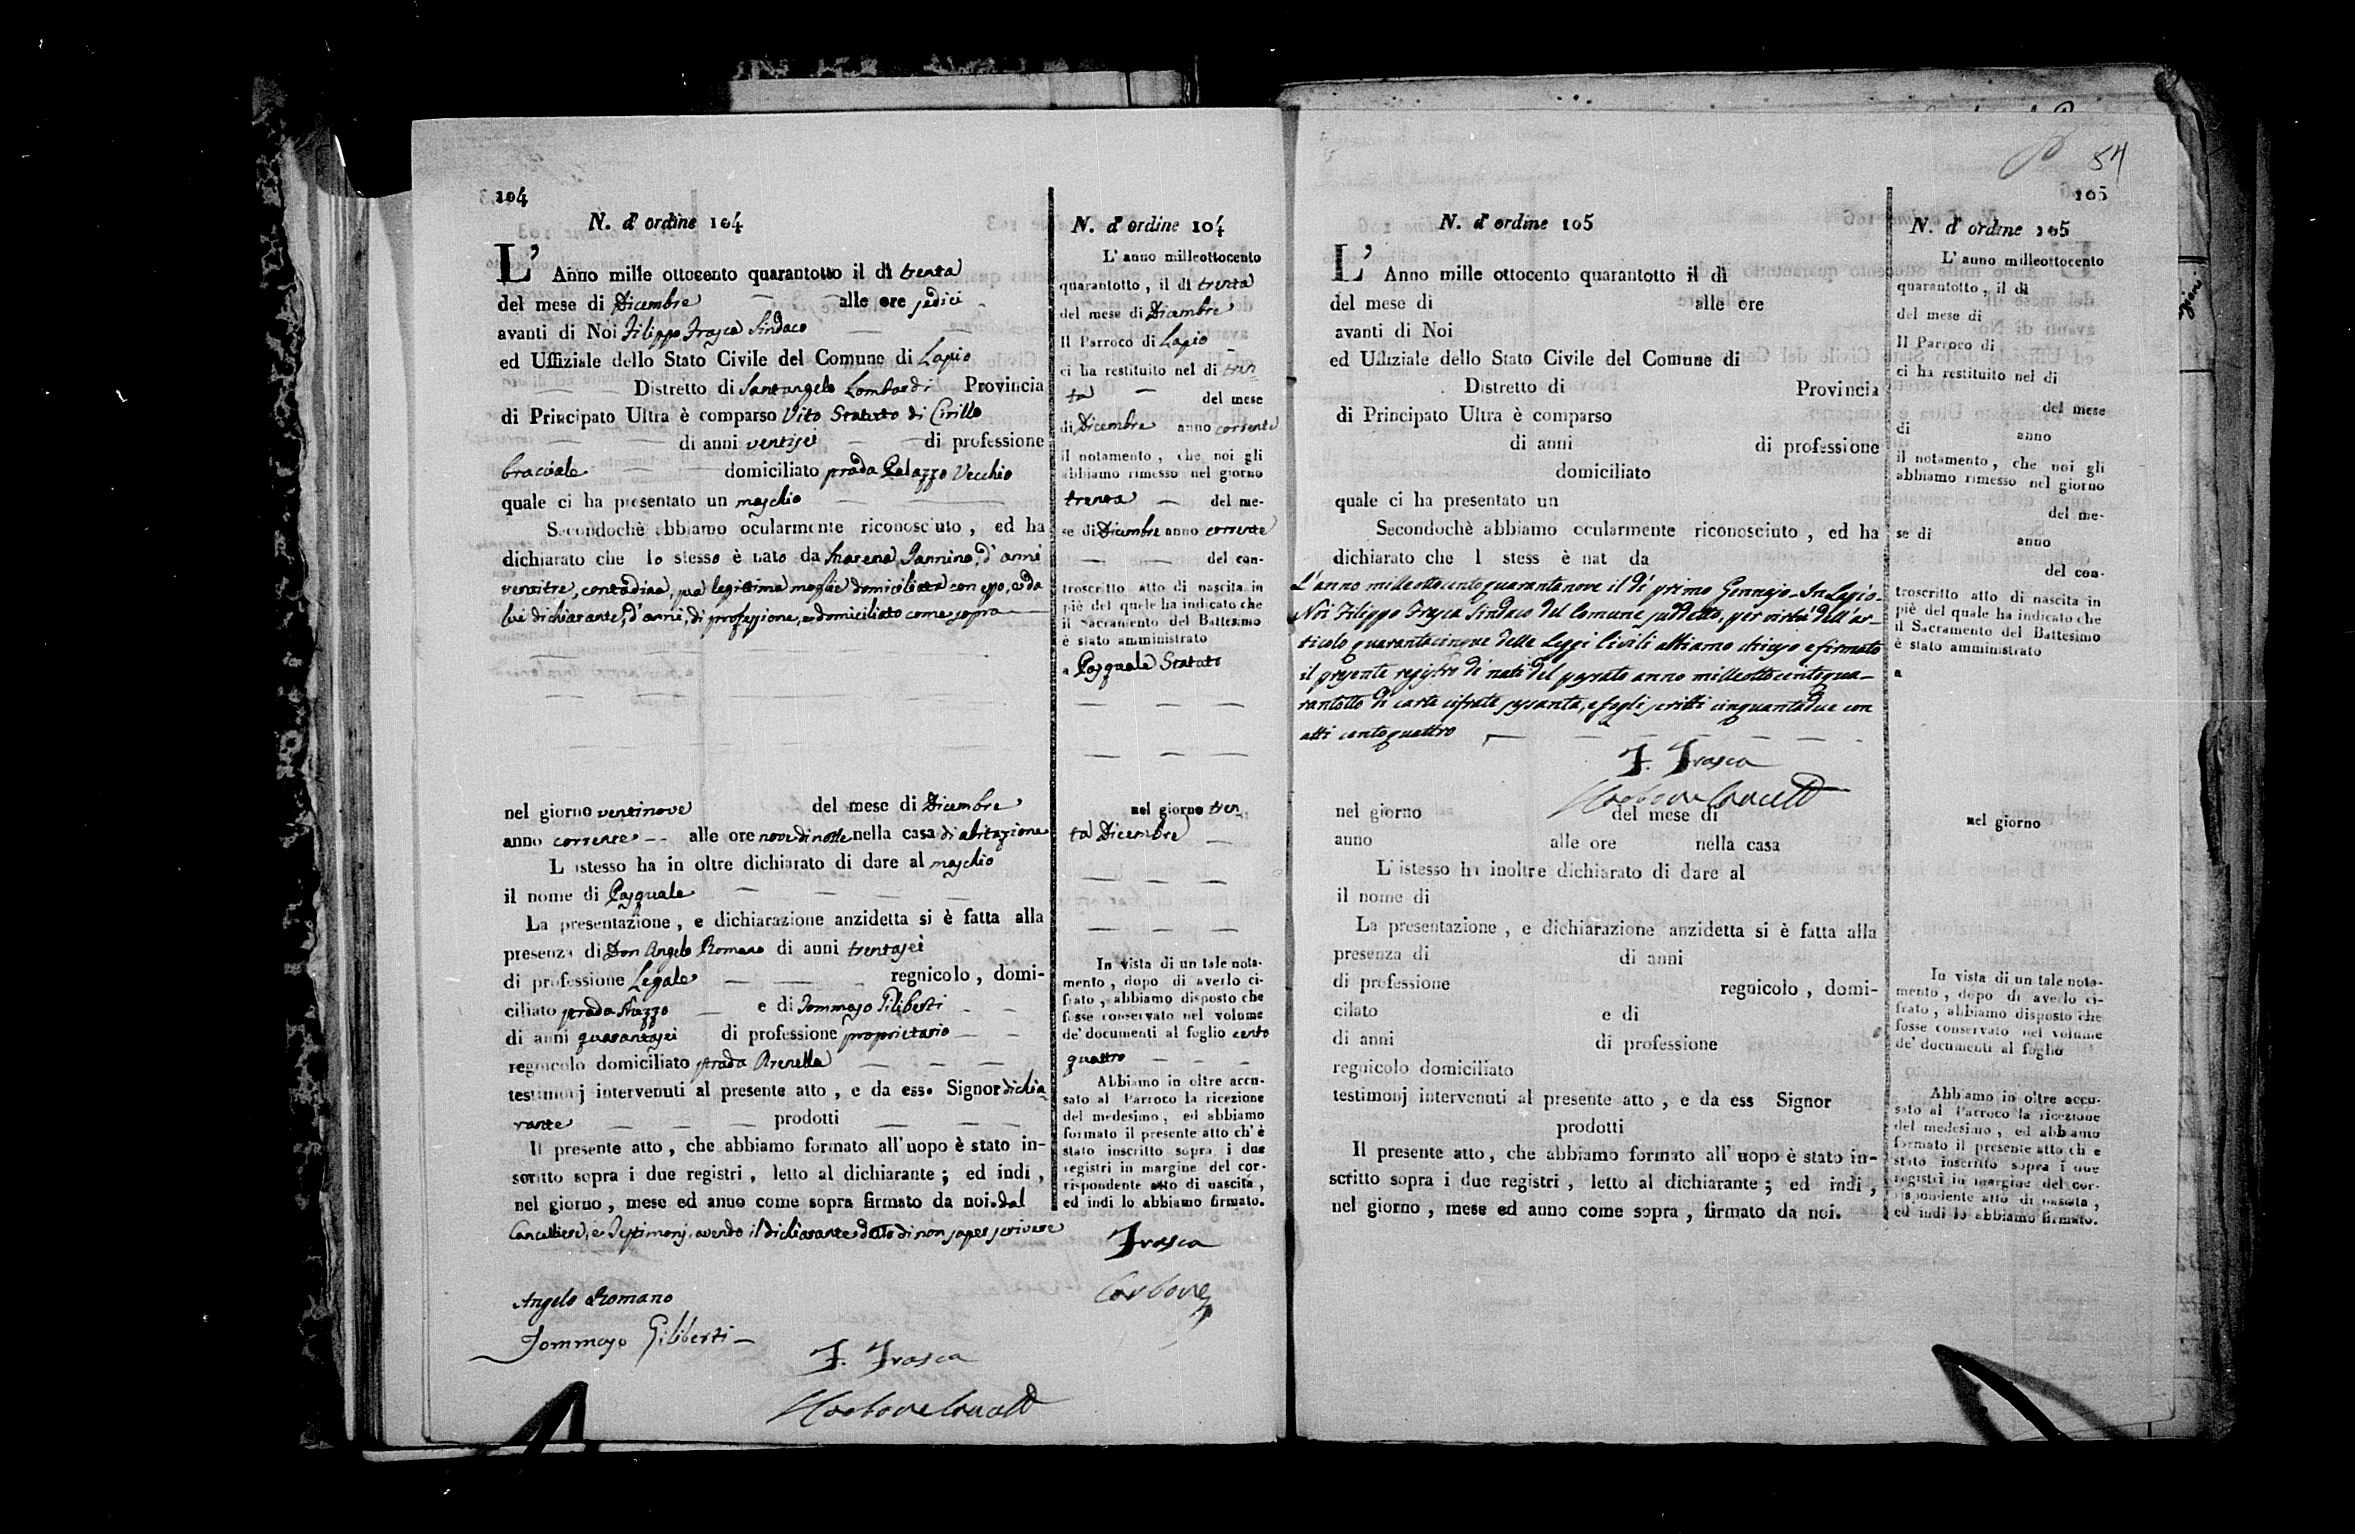 104
N. d' ordine 104
L' Anno mille ottocento quarantotto il di trenta
del mese di Dicembre alle ore sedici
avanti di Noi Filippo Frasca Sindaco
ed Uffiziale dello Stato Civile del Comune di Lapio
Distretto di Santangelo Lombardi Provincia
di Principato Ultra è comparso Vito Statuto di Cirillo
di anni ventisei di professione
bracciale domiciliato strada Palazzo Vecchio
quale ci ha presentato un maschio
Secondochè abbiamo ocularmente riconosciuto, ed ha
dichiarato che lo stesso è nato da Iannino, d'anni
ventitre, contadina, sua legittima moglie domiciliata con esso, e da
lui dichiarante, d'anni, di professione, e domiciliato come sopra
nel giorno ventinove del mese di Dicembre
anno corrente alle ore nove di notte nella casa di abitazione
L istesso ha in oltre dichiarato di dare al maschio
il nome di Pasquale
La presentazione, e dichiarazione anzidetta si è fatta alla
presenza di Don Angelo Romano di anni trentasei
di professione Legale regnicolo, domi-
ciliato strada e di Tommaso Giliberti
di anni quarantasei di professione proprietario
regnicolo domiciliato strada Arenella
testimonj intervenuti al presente atto, e da esso Signor dichia
rante prodotti
Il presente atto, che abbiamo formato all'uopo è stato in-
scritto sopra i due registri, letto al dichiarante; ed indi,
nel giorno, mese ed anno come sopra firmato da noi. dal
Cancelliere, e Testimonj, avendo il dichiarante detto di non saper scrivere
Angelo Romano
Tommaso Giliberti
F. Frasca
N. d' ordine 104
L' anno milleottocento
quarantotto, il di trenta
del mese di Dicembre
Il Parroco di Lapio
ci ha restituito nel di tren
ta del mese
di Dicembre anno corrente
il notamento, che noi gli
abbiamo rimesso nel giorno
trenta del me-
se di Dicembre anno corrente
del con-
troscritto atto di nascita in
piè del quele ha indicato che
il Sacramento del Battesimo
è stato amministrato
a Pasquale Statuto
nel giorno tren
ta Dicembre
In vista di un tale nota-
mento, dopo di averlo ci-
frato, abbiamo disposto che
fosse conservato nel volume
de' documenti al foglio cento
quattro
Abbiamo in oltre accu-
sato al Parroco la ricezione
del medesimo, ed abbiamo
formato il presente atto ch'è
stato inscritto sopra i due
registri in margine del cor-
rispondente atto di nascita,
ed indi lo abbiamo firmato.
Frasca
Carbone
54
105
N. d' ordine 105
L' Anno mille ottocento quarantotto il di
del mese di alle ore
avanti di Noi
ed Uffiziale dello Stato Civile del Comune di
Distretto di Provincia
di Principato Ultra è comparso
di anni di professione
domiciliato
quale ci ha presentato un
Secondochè abbiamo ocularmente riconosciuto, ed ha
dichiarato che l stess è nat da
L'anno milleottocentoquarantanove il dì primo Gennajo. In Lapio.
Noi Filippo Frasca Sindaco del Comune suddetto, per virtù dell'ar-
ticolo quarantacinque delle Leggi Civili abbiamo chiuso e firmato
il presente registro di nati del passato anno milleottocentoqua-
rantotto di carte cifrate sessanta, e fogli scritti cinquantadue con
atti centoquattro
F. Frasca
nel giorno del mese di
anno alle ore nella casa
L' istesso ha inoltre dichiarato di dare al
il nome di
La presentazione, e dichiarazione anzidetta si è fatta alla
presenza di di anni
di professione regnicolo, domi-
cilato e di
di anni di professione
regnicolo domiciliato
testimonj intervenuti al presente atto, e da ess Signor
prodotti
Il presente atto, che abbiamo formato all' uopo è stato in-
scritto sopra i due registri, letto al dichiarante; ed indi,
nel giorno, mese ed anno come sopra, firmato da noi.
N. d' ordine 105
L' anno milleottocento
quarantotto, il di
del mese di
Il Parroco di
ci ha restituito nel di
del mese
di anno
il notamento, che noi gli
abbiamo rimesso nel giorno
del me-
se di anno
del con-
troscritto atto di nascita in
piè del quale ha indicato che
il Sacramento del Battesimo
è stato amministrato
a
nel giorno
In vista di un tale nota-
mento, dopo di averlo ci-
frato, abbiamo disposto che
fosse conservato nel volume
de' documenti al foglio
Abbiamo in oltre accu-
sato al Parroco la ricezione
del medesimo, ed abbiamo
formato il presente atto ch'è
stato inscritto sopra i due
registri in margine del cor-
rispondente atto di nascita,
ed indi lo abbiamo firmato.